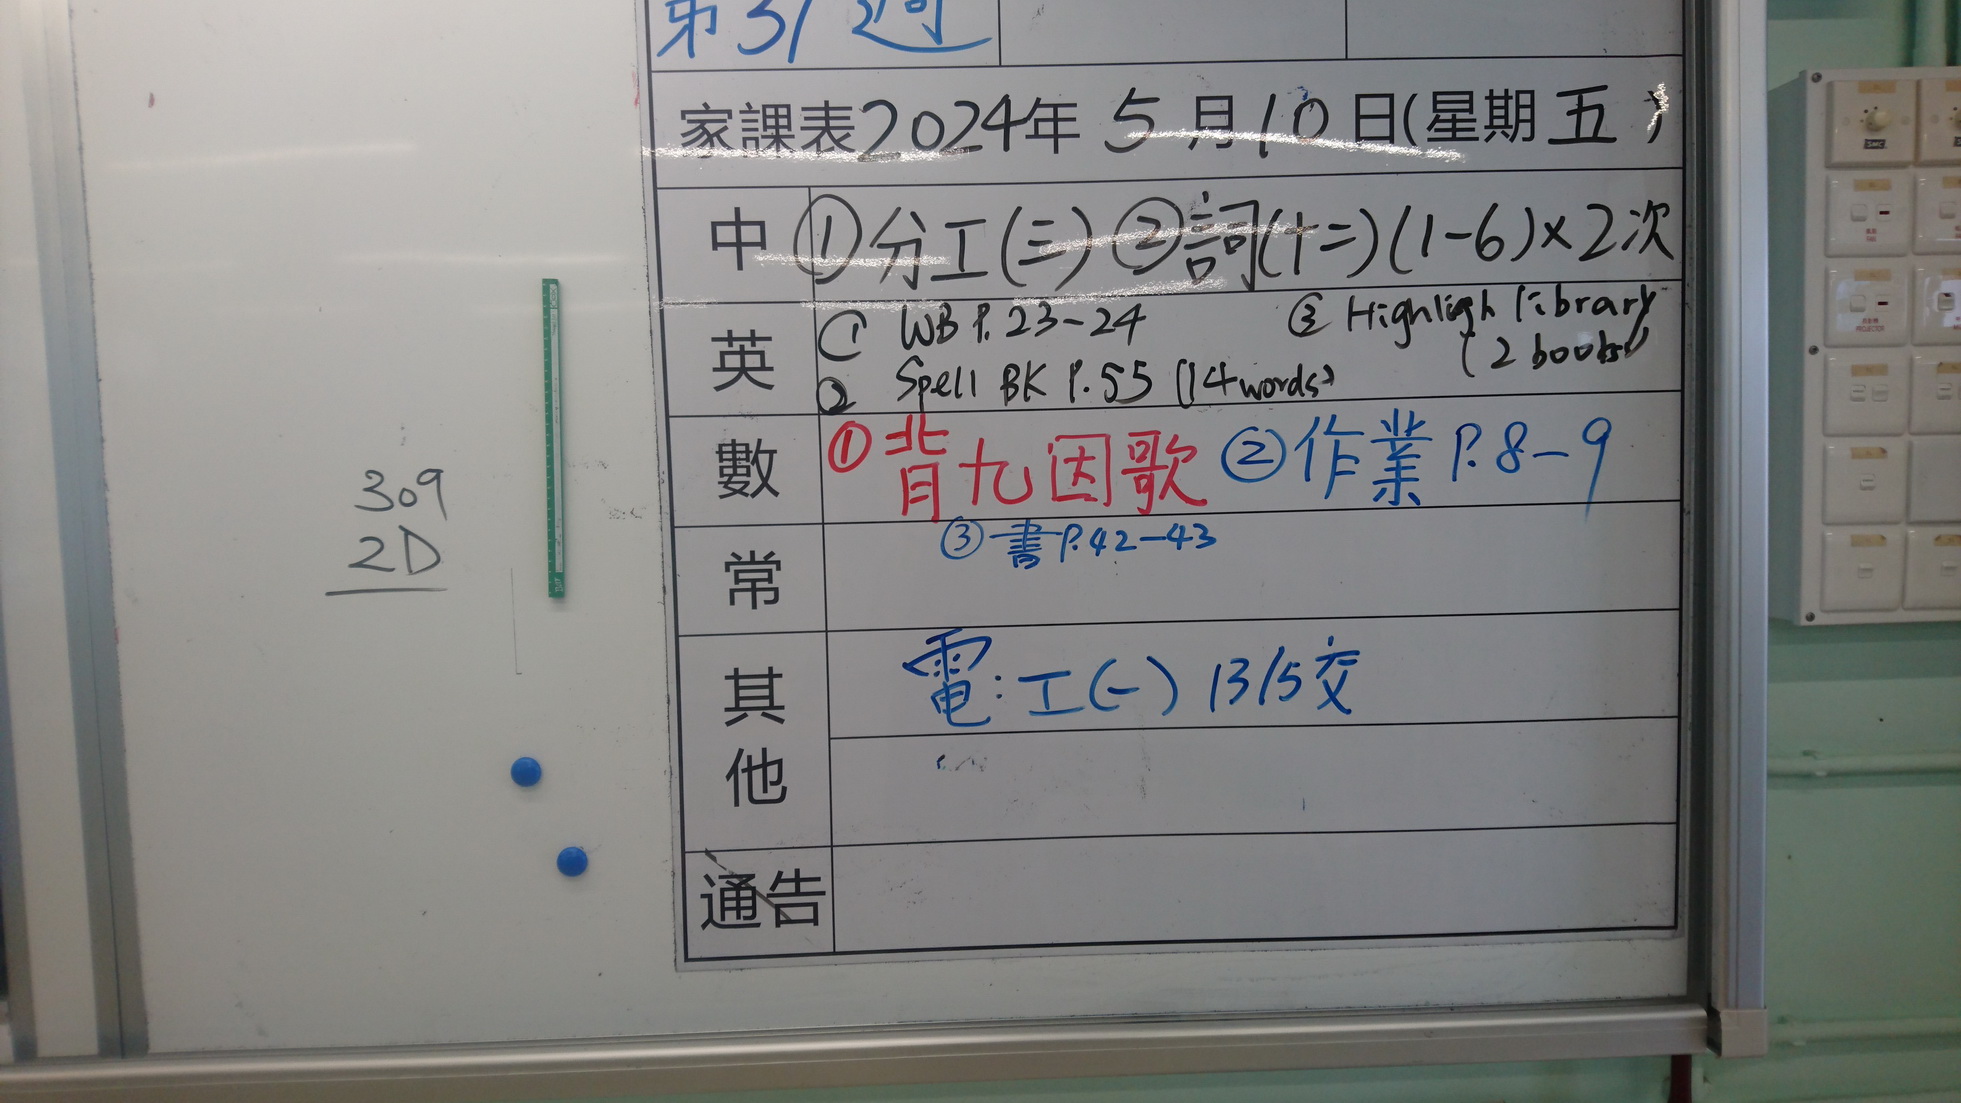 第31週
家課表2024年 5 月10日(星期 五 )
中 ①分工(三) ②詞(十二)(1-6)×2次
英 ① WB P.23-24 ③ Highligh library
(2 books)
② Spell BK P.55 (14words)
數 ①背九因歌 ②作業 P.8-9
③ 書 P.42-43
常
其他 電:工(一) 13/5交
通告
309
2D